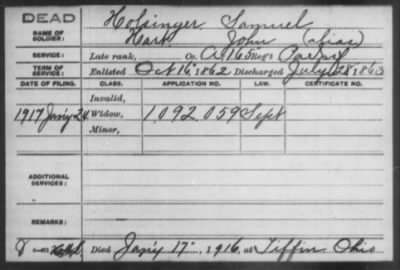 DEAD
NAME OF SOLDIER:
Holsinger, Samuel
Hart, John (alias)
SERVICE:
Late rank, Co. A, 165 Reg't Pa. Inf
TERM OF SERVICE:
Enlisted Oct 16, 1862 Discharged July 28, 1863
DATE OF FILING. CLASS. APPLICATION NO. LAW. CERTIFICATE NO.
Invalid,
1917 Jan'y 24 Widow, 1,092,059 Sept
Minor,
ADDITIONAL SERVICES:
REMARKS:
Died Jan'y 17, 1916, at Tiffin Ohio